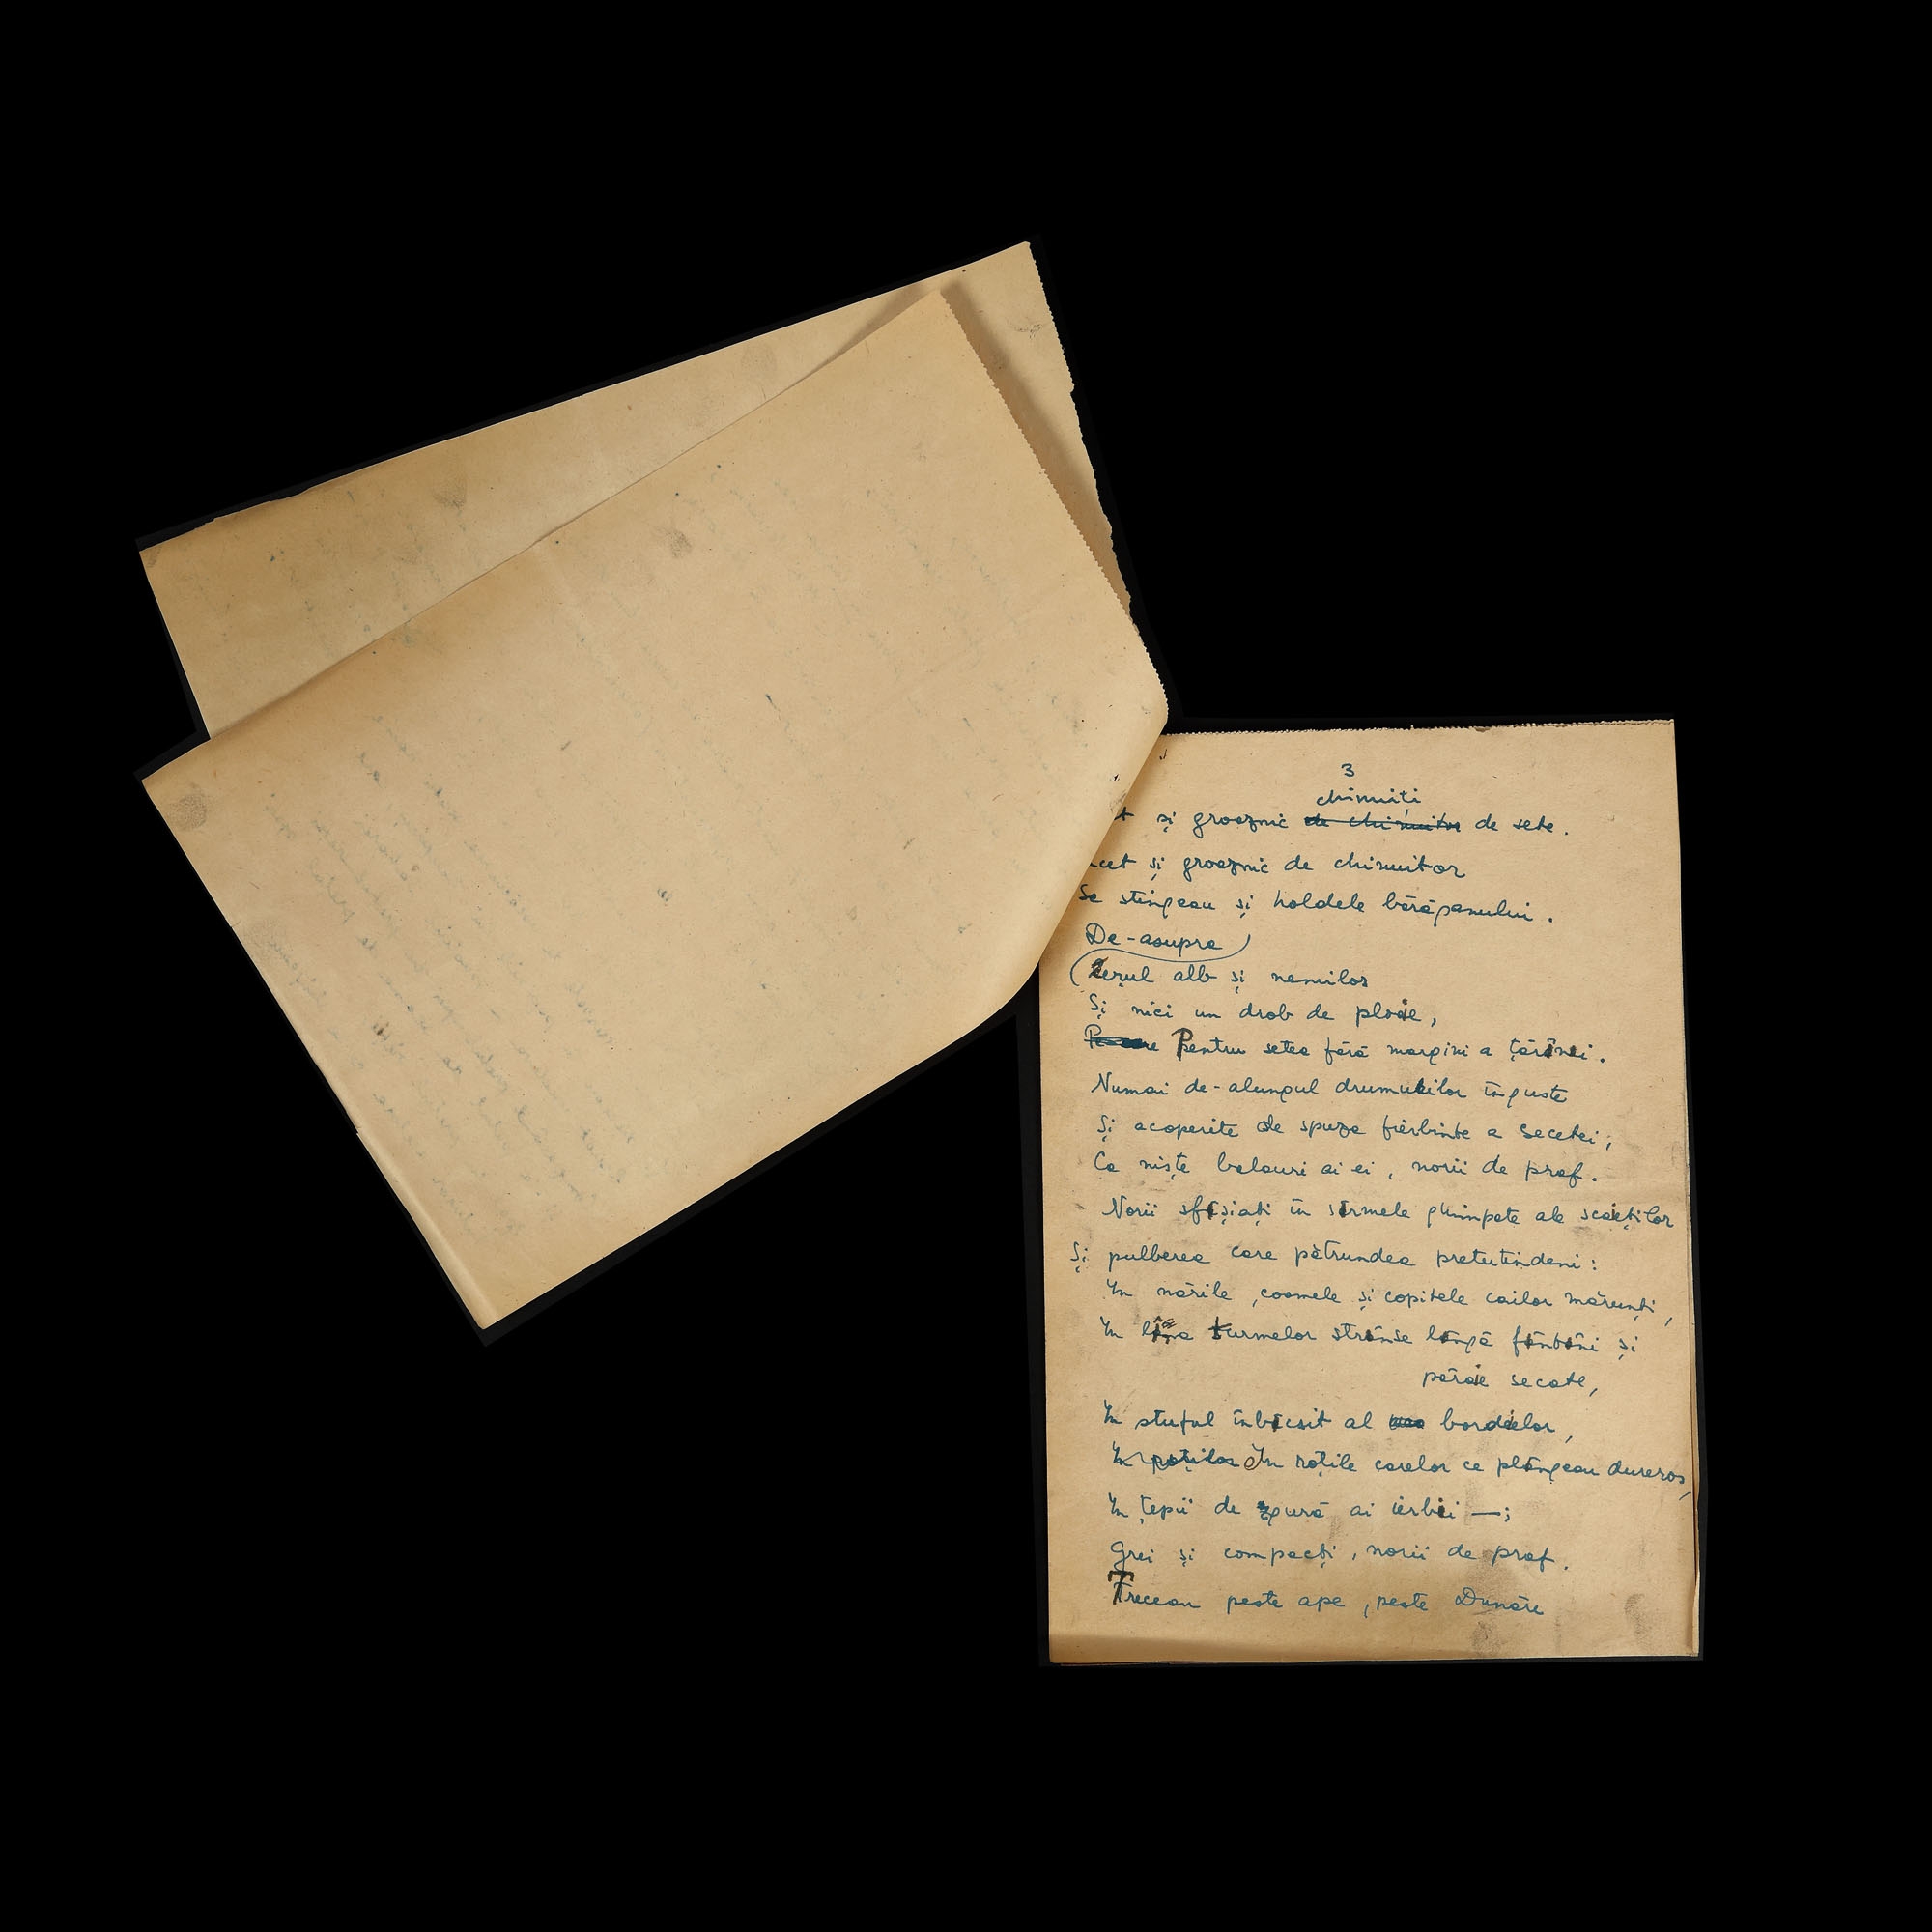 3
chinuiți
și groaznic de chinuitor de sete.
și groaznic de chinuitor
Se stingeau și holdele bărăganului.
De-asupra
Cerul alb și nemilos
Și nici un drob de ploaie,
Pentru setea fără margini a țărînei.
Numai de-alungul drumurilor înguste
Și acoperite de spuza fierbinte a secetei,
Ca niște balauri ai ei, norii de praf.
Norii sfîșiați în sîrmele ghimpate ale scaieților
Și pulberea care pătrundea pretutindeni:
În nările, coamele și copitele cailor mărunți,
În lîna turmelor strînse lîngă fîntîni și
pâraie secate,
În stuful înbîcsit al bordeielor,
În roțile carelor ce plîngeau dureros,
În țepii de zgură ai ierbii —;
Grei și compacți, norii de praf.
Treceau peste ape, peste Dunăre